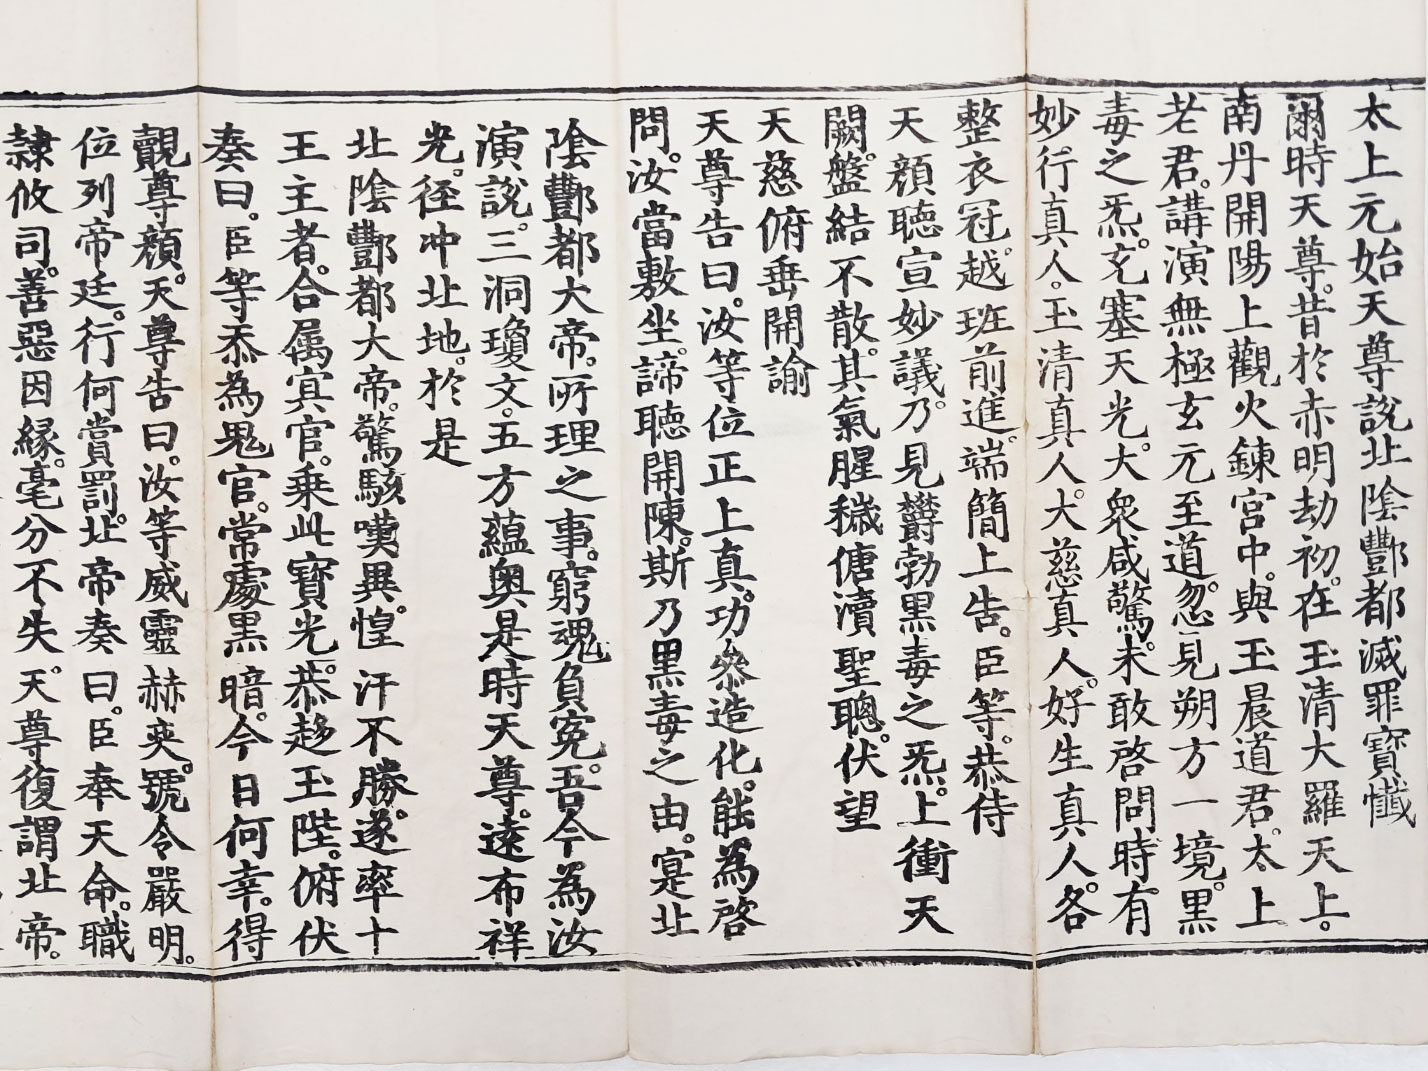 太上元始天尊說北陰酆都滅罪寶懺
爾時天尊。昔於赤明劫初。在玉清大羅天上。
南丹開陽上觀火鍊宮中。與玉晨道君。太上
老君。講演無極玄元至道。忽見朔方一境。黑
毒之炁。充塞天光。大衆咸驚。未敢啓問。時有
妙行真人。玉清真人。大慈真人。好生真人。各
整衣冠。越班前進。端簡上告。臣等。恭侍
天顔聽宣妙議。乃見欝勃黑毒之炁。上衝天
闕。盤結不散。其氣腥穢傏瀆聖聰。伏望
天慈俯垂開諭
天尊告曰。汝等位正上真。功叅造化。能為啓
問。汝當敷坐。諦聽開陳。斯乃黑毒之由。寔北
陰酆都大帝。所理之事。窮魂負冤。吾今為汝
演說。三洞瓊文。五方蘊奥是時天尊。遠布祥
光。徑冲北地。於是
北陰酆都大帝。驚駭嘆異。惶汗不勝。遂率十
王主者。合属冥官。乗此寶光。恭趍玉陛。俯伏
奏曰。臣等忝為鬼官。常處黒暗。今日何幸。得
覩尊顔。天尊告曰。汝等威靈赫奕。號令嚴明。
位列帝廷。行何賞罰。北帝奏曰。臣奉天命。職
隷攸司。善惡因緣。毫分不失。天尊復謂北帝。